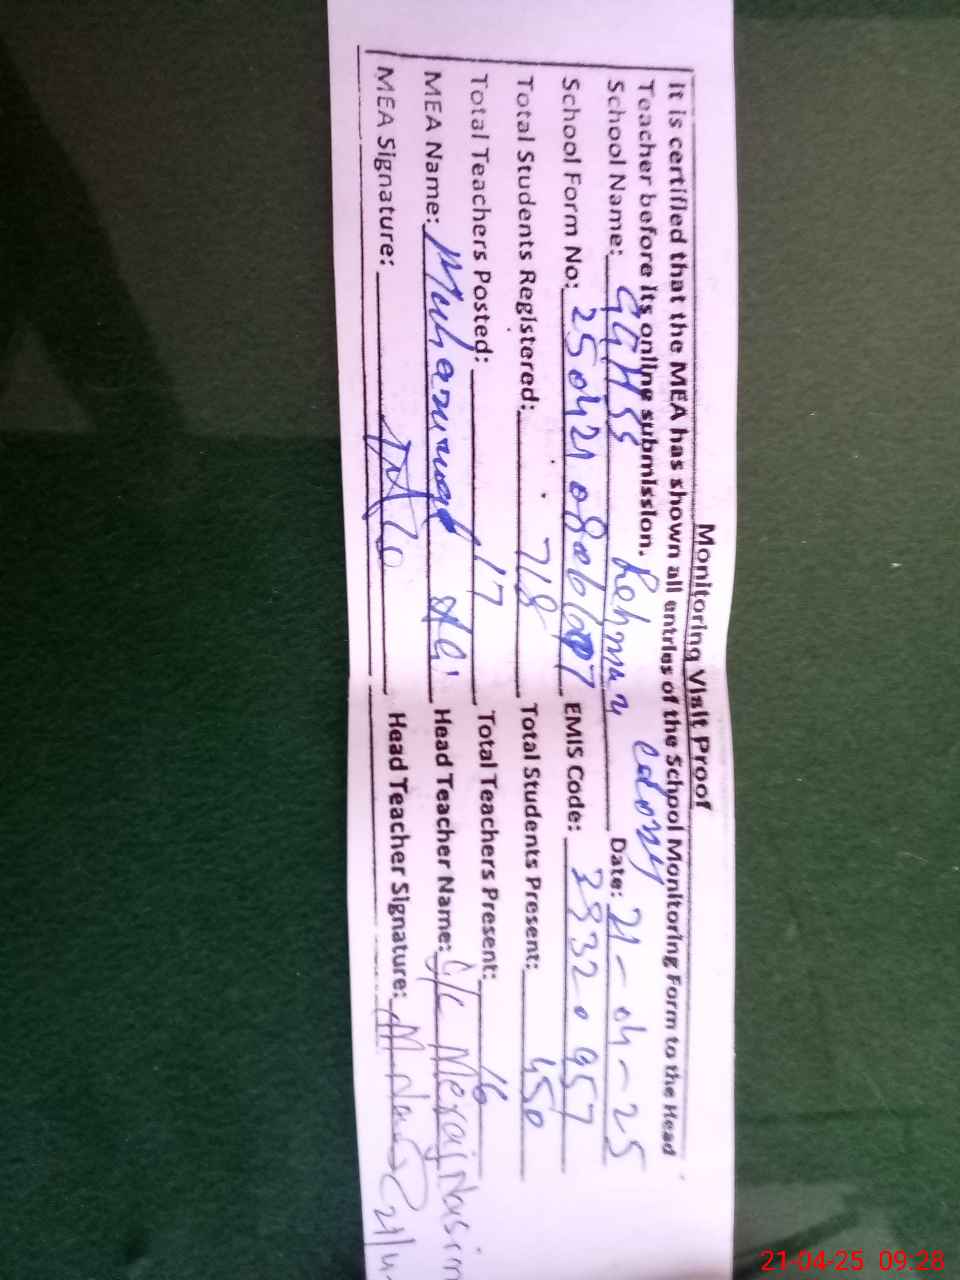 Monitoring Visit Proof
It is certified that the MEA has shown all entries of the School Monitoring Form to the Head
Teacher before its online submission.
School Name: GGHSS Rehman Colony Date: 21-04-25
School Form No: EMIS Code:
Total Students Registered: 718 Total Students Present: 450
Total Teachers Posted: 17 Total Teachers Present: 16
MEA Name: Muhammad Ali Head Teacher Name: Meraj Nasim
MEA Signature: Head Teacher Signature:
21-04-25 09:28